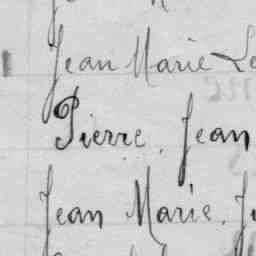 Jean Marie Le
Pierre, Jean
Jean Marie, J